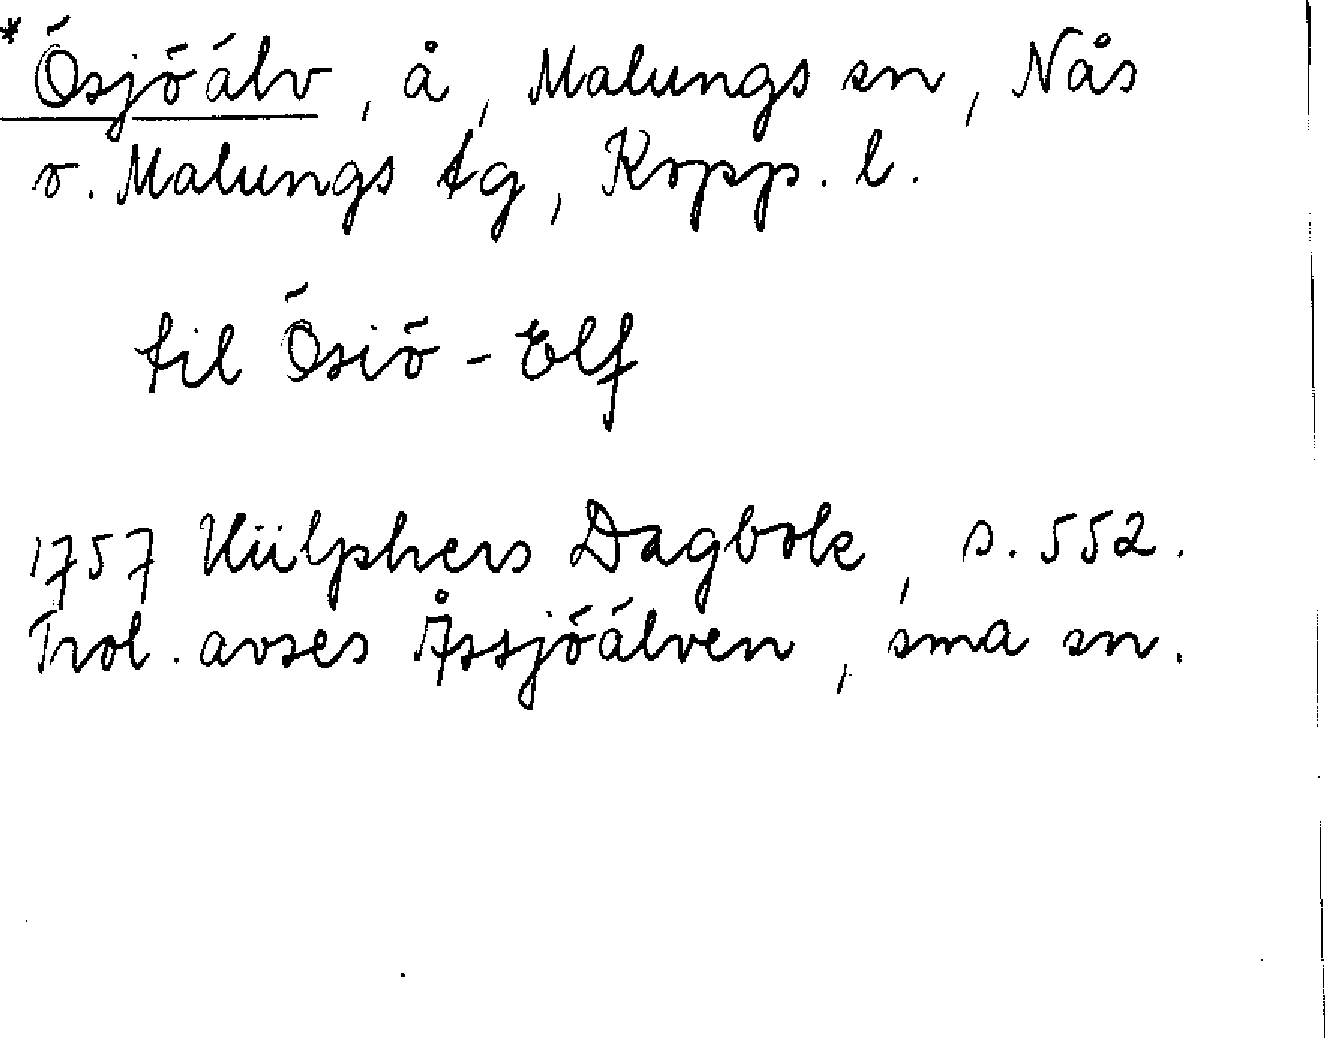 * Ösjöälv, å, Malungs sn, Nås
o. Malungs tg, Kopp. l.
til Ösiö-Elf
1757 Hülphers Dagbok, s. 552.
Trol. avses Åssjöälven, sma sn.